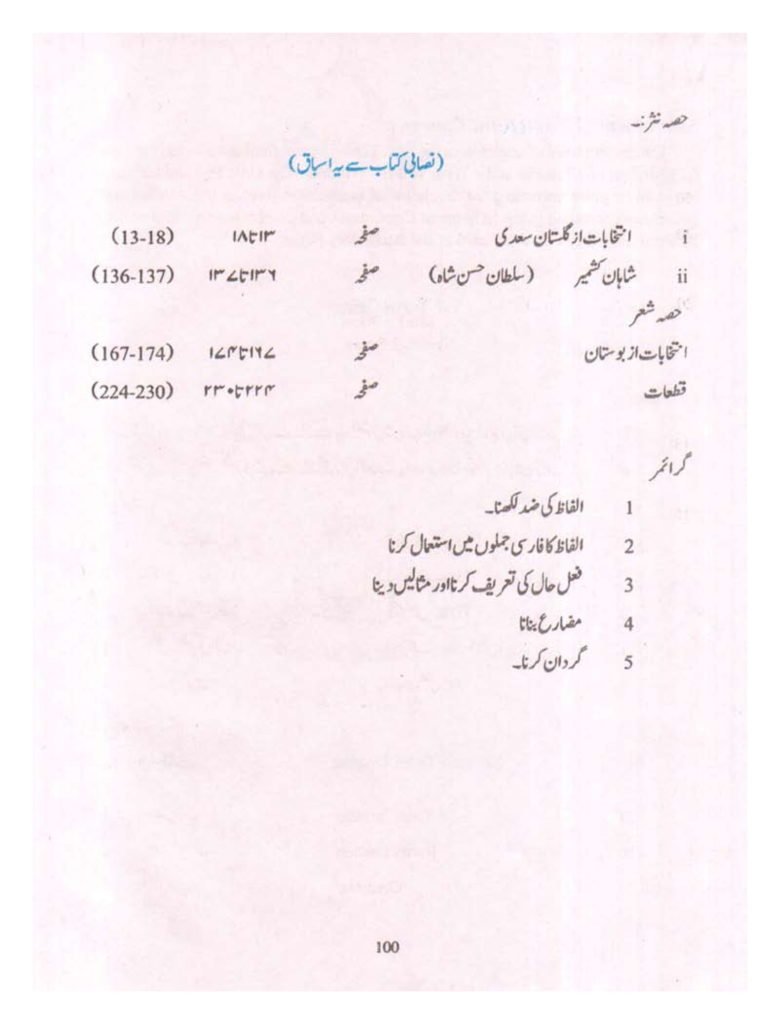 حصہ نثر:۔
(نصابی کتاب سے یہ اسباق)
i انتخابات از گلستان سعدی صفحہ ۱۳ تا ۱۸ (13-18)
ii شاہان کشمیر (سلطان حسن شاہ) صفحہ ۱۳۶ تا ۱۳۷ (136-137)
حصہ شعر
انتخابات از بوستان صفحہ ۱۶۷ تا ۱۷۴ (167-174)
قطعات صفحہ ۲۲۴ تا ۲۳۰ (224-230)
گرائمر
1 الفاظ کی ضد لکھنا۔
2 الفاظ کا فارسی جملوں میں استعمال کرنا
3 فعل حال کی تعریف کرنا اور مثالیں دینا
4 مضارع بنانا
5 گردان کرنا۔
100